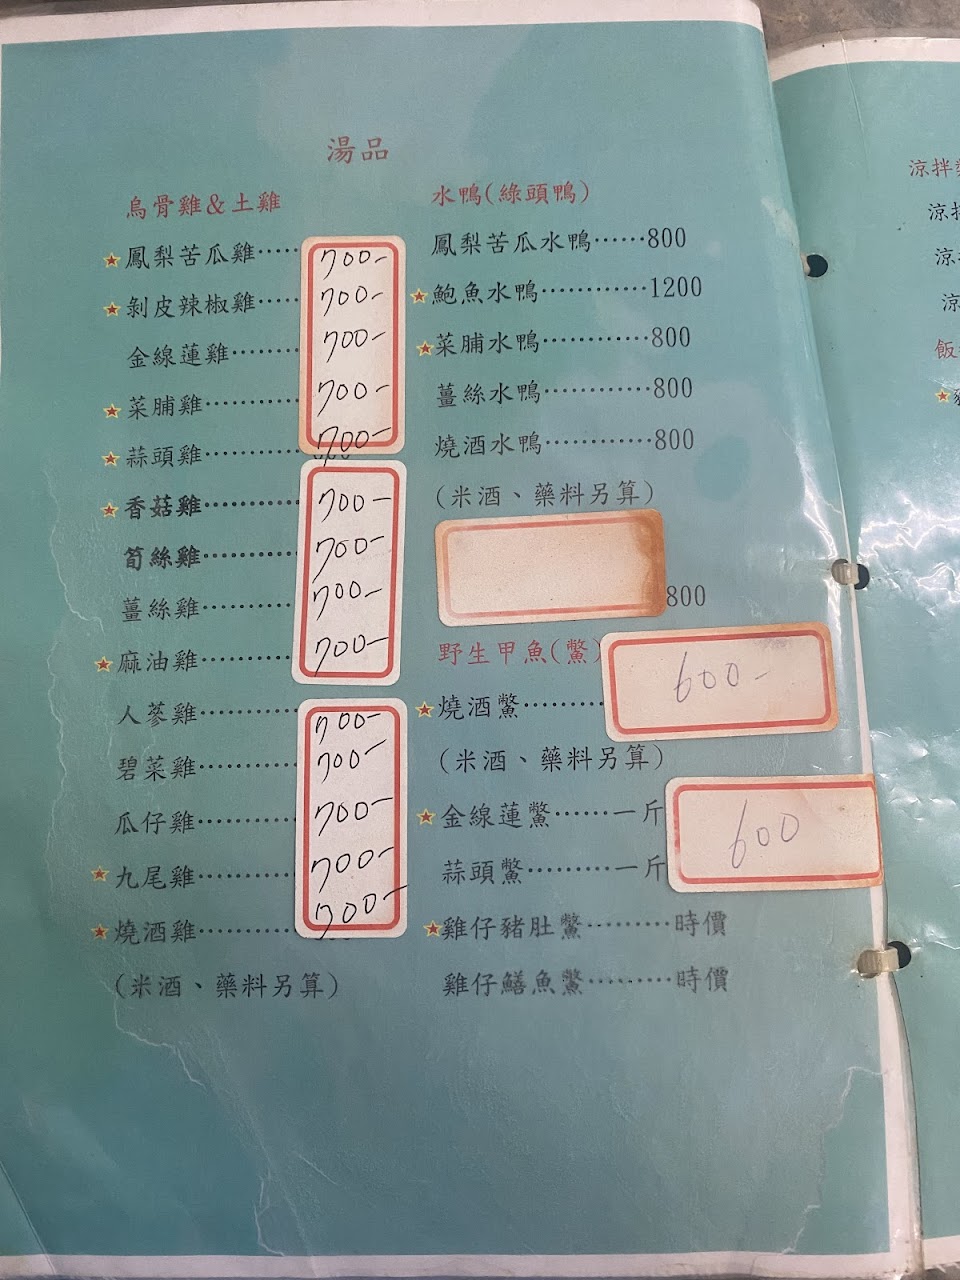 湯品
烏骨雞&土雞
鳳梨苦瓜雞······700-
剝皮辣椒雞······700-
金線蓮雞········700-
菜脯雞··········700-
蒜頭雞··········700-
香菇雞··········700-
筍絲雞··········700-
薑絲雞··········700-
麻油雞··········700-
人蔘雞··········700-
碧菜雞··········700-
瓜仔雞··········700-
九尾雞··········700-
燒酒雞··········700-
(米酒、藥料另算)
水鴨(綠頭鴨)
鳳梨苦瓜水鴨······800
鮑魚水鴨············1200
菜脯水鴨············800
薑絲水鴨············800
燒酒水鴨············800
(米酒、藥料另算)
800
野生甲魚(鱉)
燒酒鱉·········600-
(米酒、藥料另算)
金線蓮鱉······一斤600
蒜頭鱉·········一斤
雞仔豬肚鱉·········時價
雞仔鱔魚鱉·········時價
涼拌
涼
涼
涼
飯